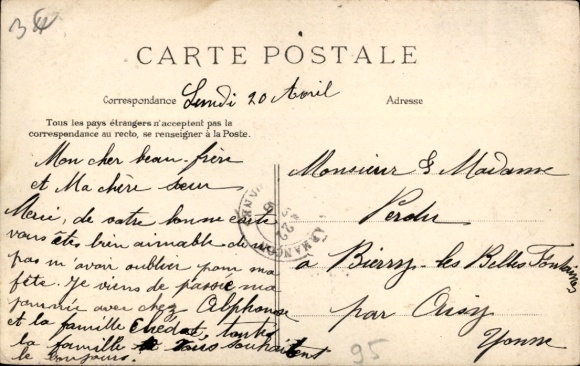 CARTE POSTALE
Correspondance Lundi 20 Avril Adresse
Tous les pays étrangers n'acceptent pas la
correspondance au recto, se renseigner à la Poste.
Mon cher beau-frère
et Ma chère sœur
Merci, de votre bonne carte
vous êtes bien aimable de ne
pas m'avoir oublier pour ma
fête. Je viens de passée ma
journée avec chez Alphonse
et la famille Chedat, toute
la famille vous souhaitent
le bonjours.
Monsieur & Madame
Perdu
à Bierry-les Belles Fontaines
par Aisy
Yonne
95